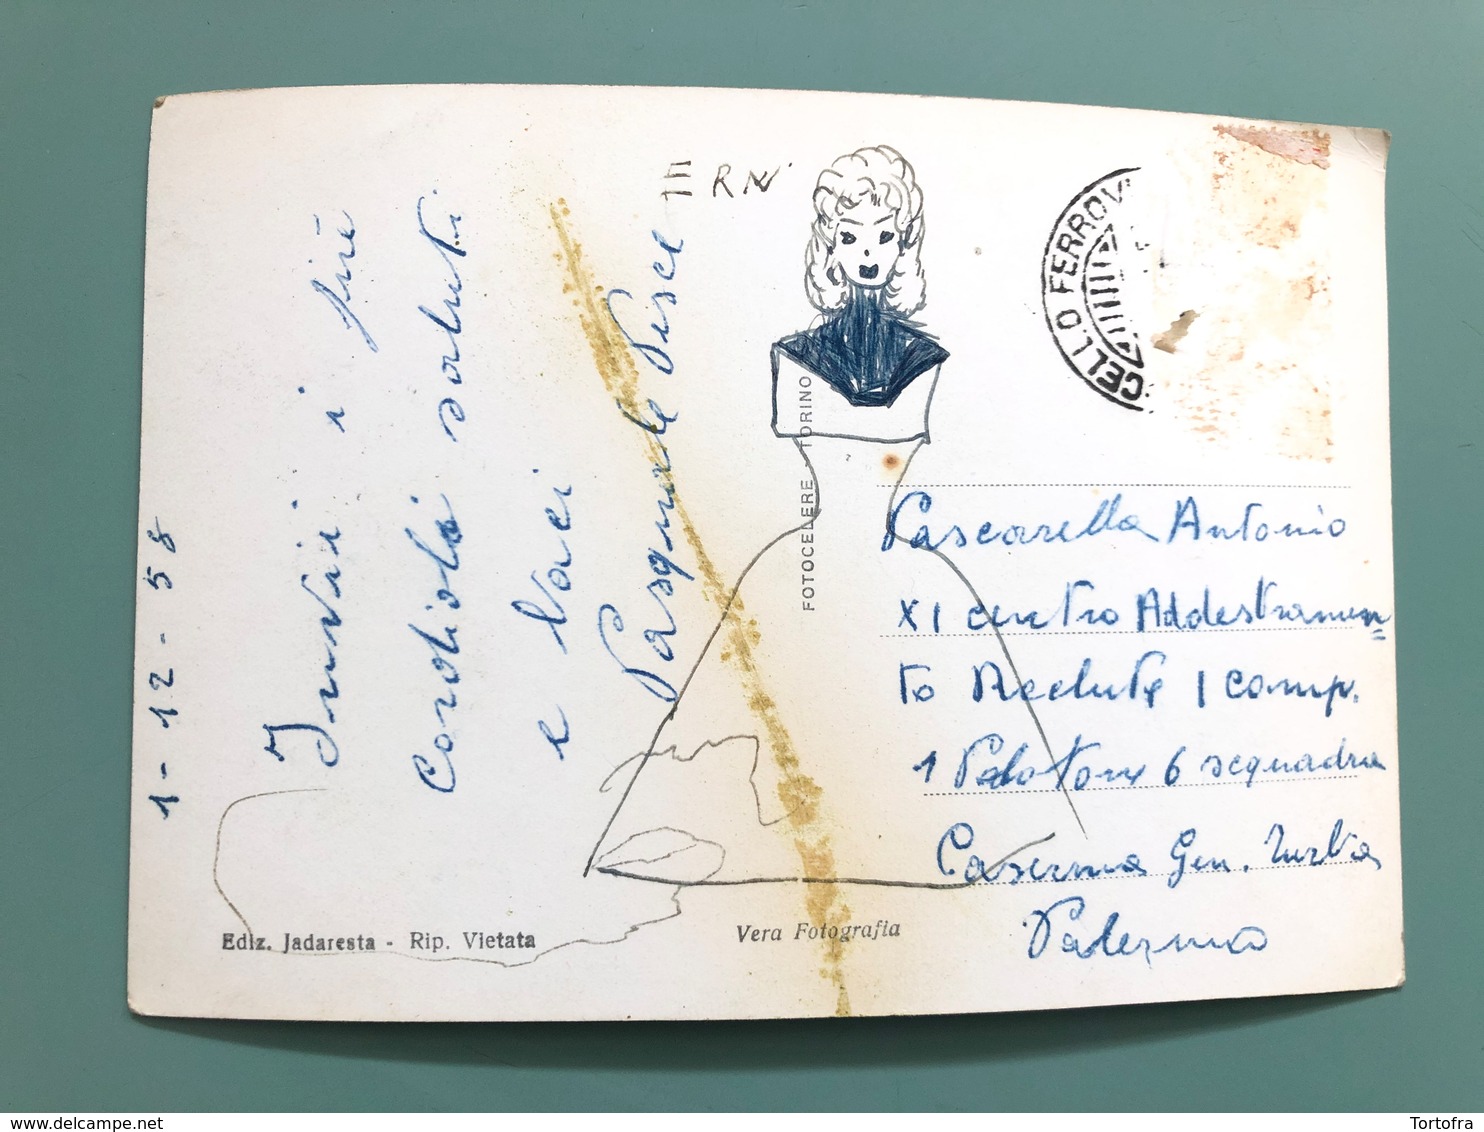 1-12-58
Invii i più
Cordiali saluti
e Baci
Pasquale Pesce
FOTOCELERE - TORINO
GELLO FERROV
Pascarella Antonio
XI centro Addestramen=
to Reclute 1 comp.
1 Plotone 6 sequadra
Caserma Gen. Turba
Palermo
Ediz. Jadaresta - Rip. Vietata
Vera Fotografia
www.delcampe.net
Tortofra